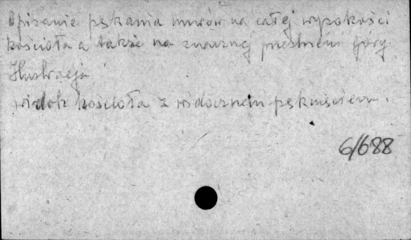 Opisanie pękania murów na całej wysokości
kościoła a także na znacznej przestrzeni góry
Ilustracja
widok kościoła z widocznem pęknięciem.
6/688